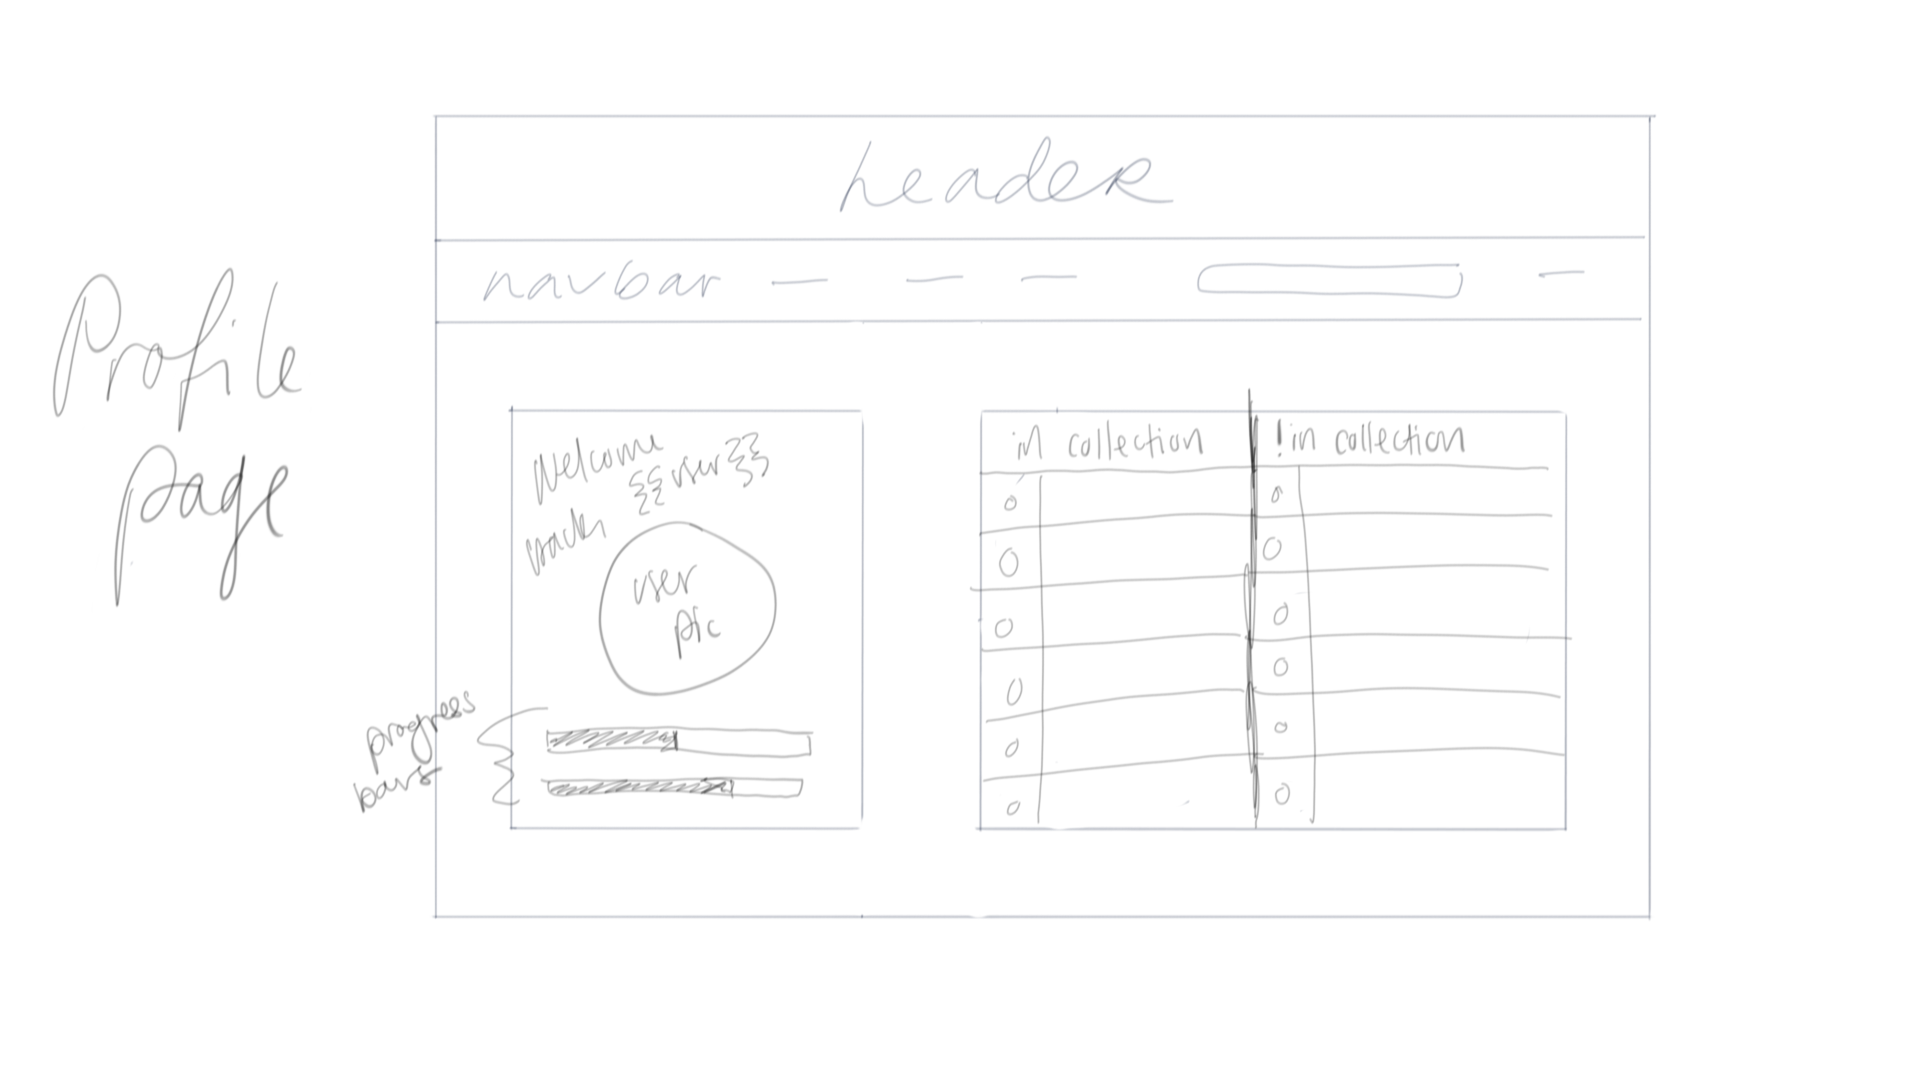 Profile
page
header
navbar
Welcome
back, {{user}}
user
pic
progress
bars
in collection
!in collection